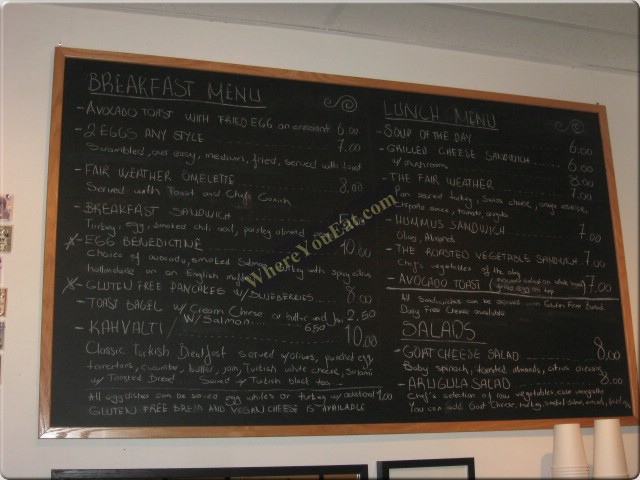 BREAKFAST MENU
- AVOCADO TOAST WITH FRIED EGG on croissant 6.00
- 2 EGGS ANY STYLE 7.00
Scrambled, over easy, medium, fried, served with toast
- FAIR WEATHER OMELETTE 8.00
Served with Toast and Chefs Garnish
- BREAKFAST SANDWICH
Turkey, egg, smoked chili aioli, parsley, almond
- EGG BENEDICTINE 10.00
Choice of avocado, smoked Salmon, turkey with spicy citrus
hollandaise on an English muffin
- GLUTEN FREE PANCAKES W/ BLUEBERRIES 8.00
- TOAST BAGEL W/ Cream Cheese or butter and Jam 2.50
W/ Salmon 6.50
- KAHVALTI 10.00
Classic Turkish Breakfast served w/ olives, poached egg
tomatoes, cucumber, butter, jam, Turkish white cheese, salami
w/ Toasted Bread Served w/ Turkish black tea
All egg dishes can be served egg whites or turkey w/ additional 1.00
GLUTEN FREE BREAD AND VEGAN CHEESE IS AVAILABLE
LUNCH MENU
- SOUP OF THE DAY 6.00
- GRILLED CHEESE SANDWICH 6.00
w/ mushrooms 8.00
- THE FAIR WEATHER 7.00
Pan seared turkey, swiss cheese, orange
Chipotle sauce, tomato, arugula
- HUMMUS SANDWICH 7.00
Olives, Almonds
- THE ROASTED VEGETABLE SANDWICH 7.00
Chef's vegetables of the day
- AVOCADO TOAST (avocado salad on whole wheat) 7.00
fried egg on top
All Sandwiches can be served with Gluten Free Bread.
Dairy Free Cheese available
SALADS
- GOAT CHEESE SALAD 8.00
Baby spinach, toasted almonds, citrus dressing
- ARUGULA SALAD 8.00
Chef's selection of raw vegetables,
You can add Goat Cheese, turkey, smoked salmon
WhereYouEat.com